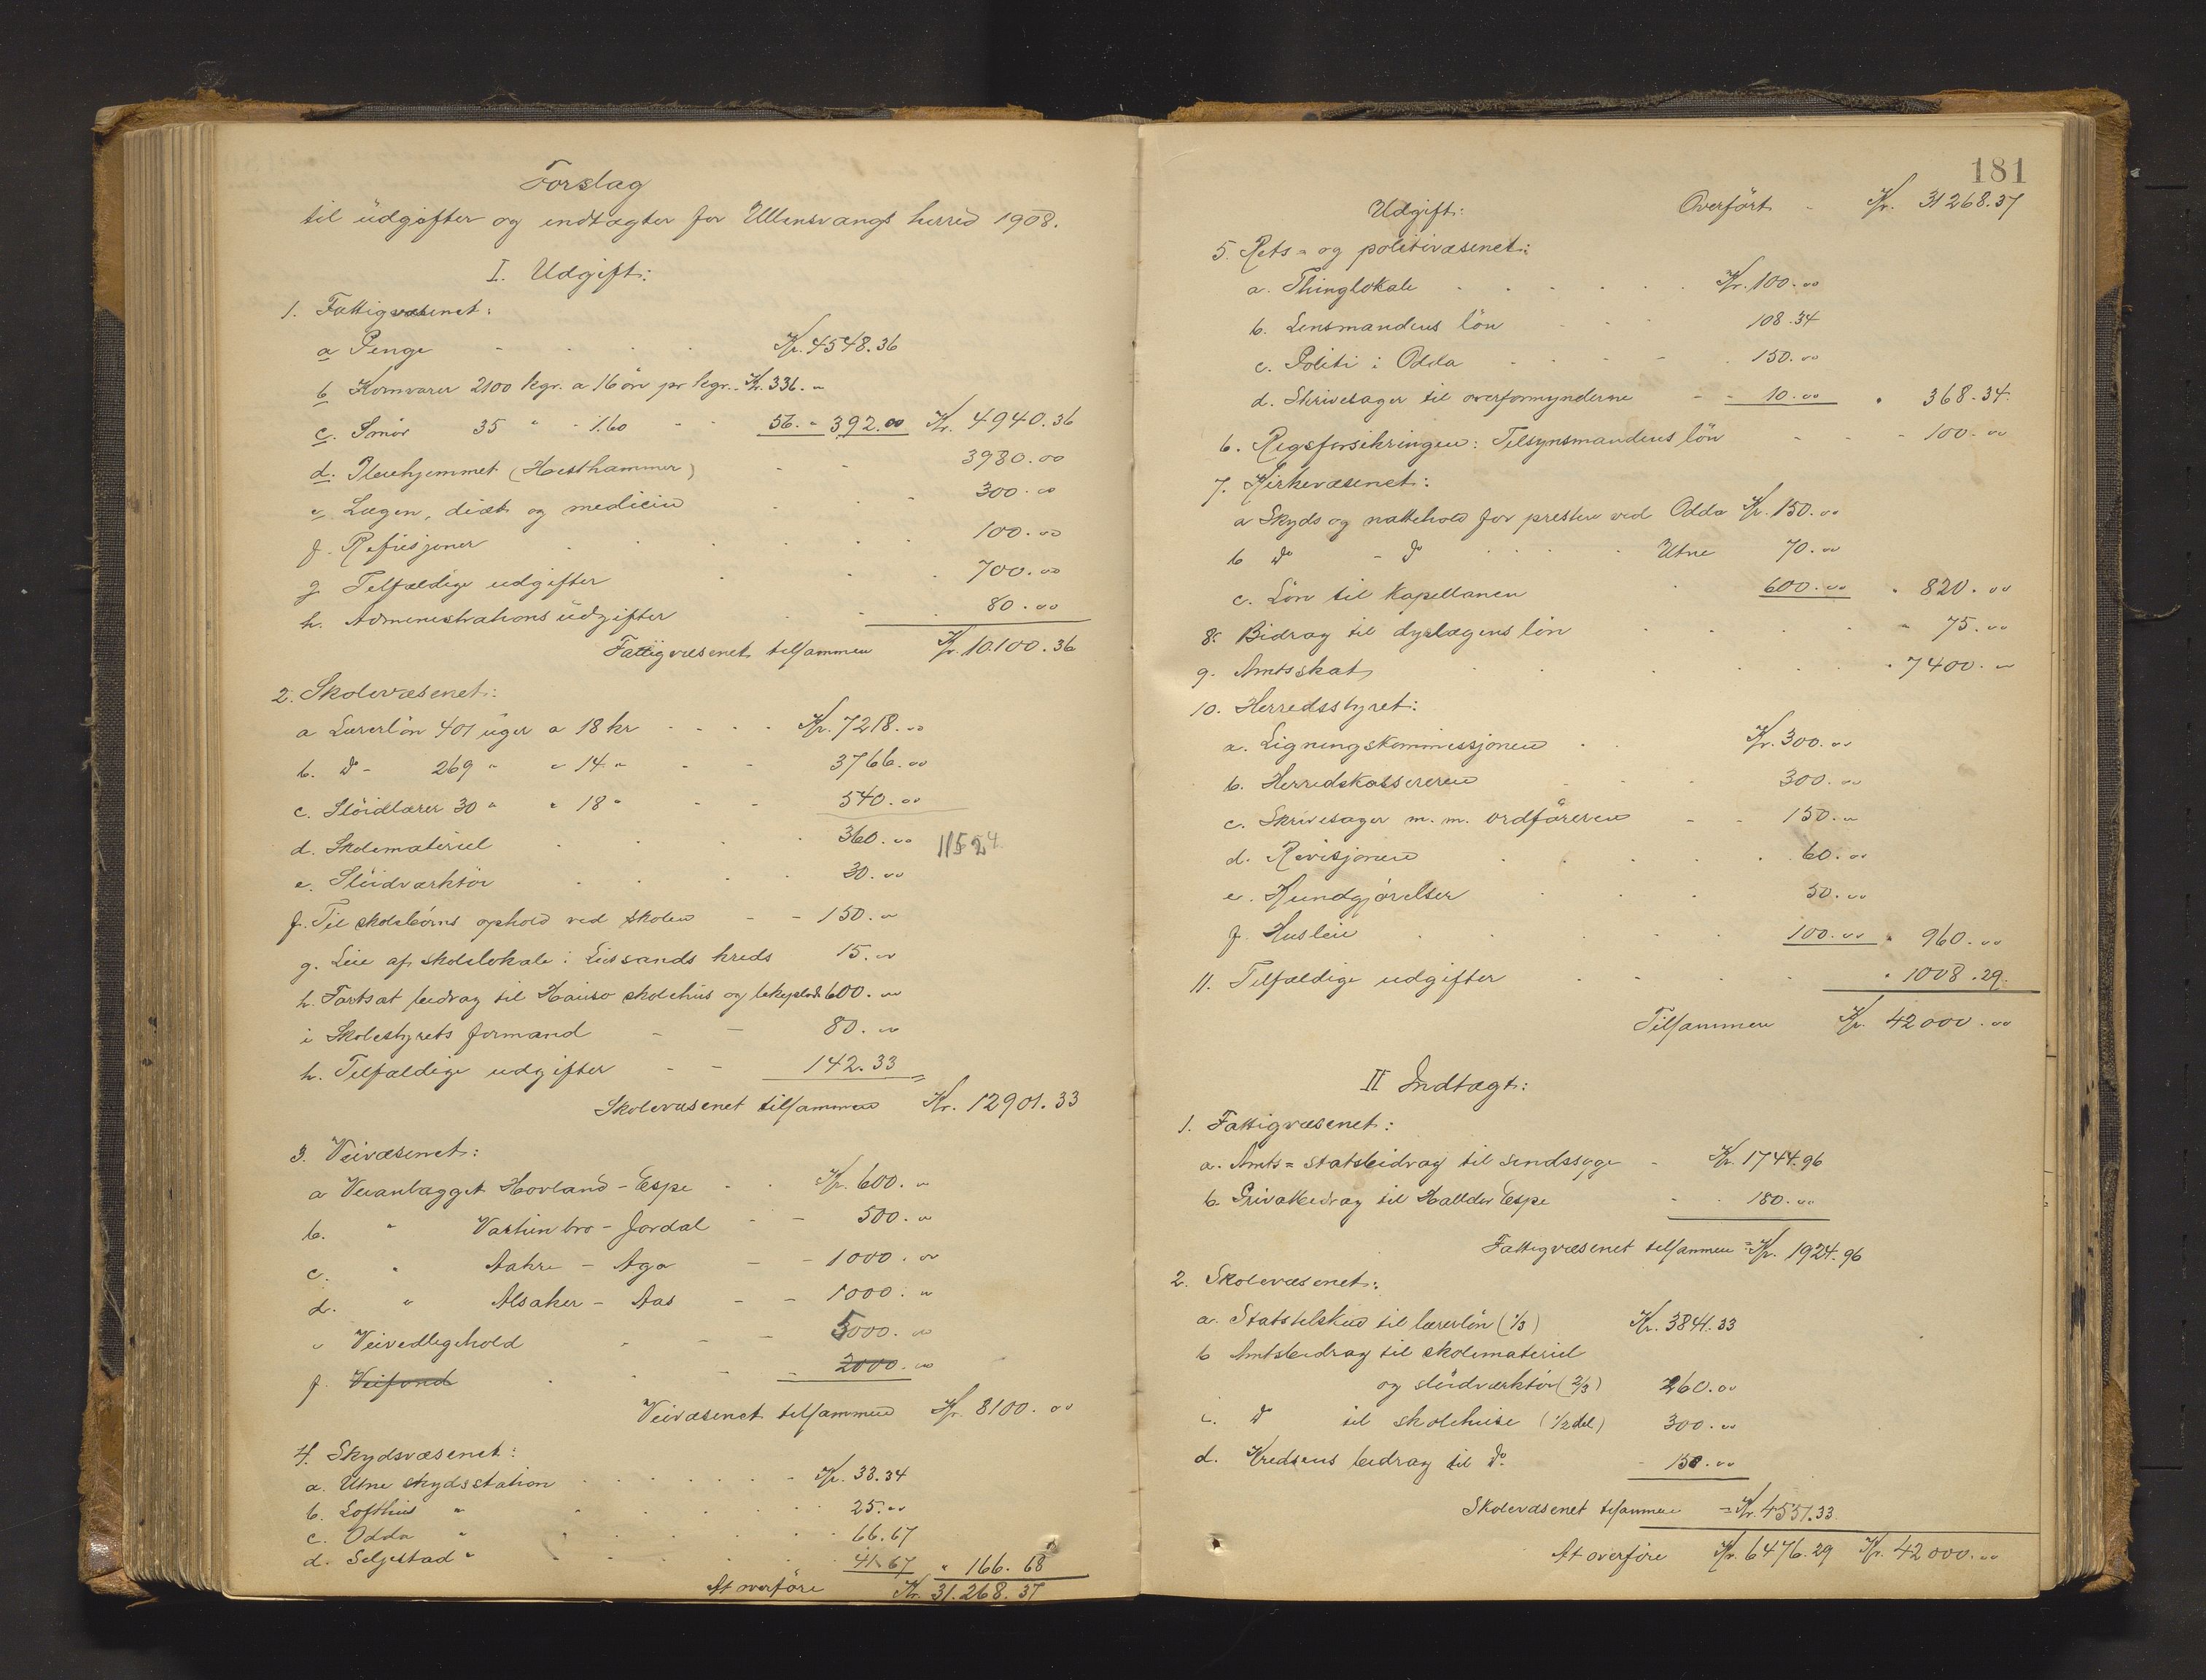 Forslag
til udgifter og indtægter for Ullensvangs herred 1908.
I. Udgift:
1. Fattigvæsenet:
a Penge - - - - Kr. 4548.36
b Kornvarer 2100 kgr. a 16 øre pr kgr. - Kr. 336. "
c. Smør 35 " - 1.60 - - 56. " 392.00 Kr. 4940.36
d. Pleiehjemmet (Hesthammer) - - 3980.00
e Lægen, diæt og medicin - - - 300.00
f. Refusjoner - - - - 100.00
g. Tilfældige udgifter - - - 700.00
h. Administrationsudgifter - - 80.00
Fattigvæsenet tilsammen Kr. 10.100.36
2. Skolevæsenet:
a Lærerløn 401 uger a 18 kr - - - - Kr. 7218.00
b. do - 269 " a 14 " - - 3766.00
c. Sløidlærer 30 " a 18 " - - 540.00
d. Skolemateriel - - - 360.00 11524
e. Sløidværktøi - - - - 30.00
f. Til skolebørns ophold ved skolen - - 150. "
g. Leie af skolelokale i Lussands kreds 15. "
h. Fortsat bidrag til Hauso skolehus og lekeplads 600. "
i Skolestyrets formand - - 80. "
k. Tilfældige udgifter - - 142.33
Skolevæsenet tilsammen Kr. 12901.33
3. Veivæsenet:
a Veianlægget Hovland - Espe - - Kr. 600. "
b. " Vastun bro - Jordal - - 500. "
c. " Aahre - Aga - - 1000. "
d. " Alsaker - Aas - - 1000. "
e Veivedligehold - - - 5000. "
f. Veifond - - - - 2000. "
Veivæsenet tilsammen Kr. 8100.00
4. Skydsvæsenet:
a. Utne skydsstation - - - - - - Kr. 33.34
b. Lofthus " - - - - 25. "
c. Odda " - - - - 66.67
d. Seljestad " - - - - 41.67 " 166.68
At overføre Kr. 31.268.37
181
Udgift: Overført - Kr. 31268.37
5. Rets- og politivæsenet:
a. Thinglokale - - - - - - Kr. 100.00
b. Lensmandens løn - - - 108.34
c. Politi i Odda - - - - 150.00
d. Skrivesager til overformynderne - - 10.00 " 368.34
6. Rigsforsikringen: Tilsynsmandens løn - - - 100.00
7. Kirkevæsenet:
a Skyds og nattehold for presten ved Odda Kr. 150.00
b do - do - - - - Utne 70.00
c. Løn til kapellanen - 600.00 " 820.00
8. Bidrag til dyrlægens løn - - - - - 75.00
9. Amtsskat - - - - - " 7400. "
10. Herredsstyret:
a. Ligningskommissjonen - - Kr. 300.00
b. Herredskassereren - - - 300.00
c. Skrivesager m. m. ordføreren - - 150. "
d. Revisjonen - - - - 60.00
e. Kundgjørelser - - - 50.00
f. Husleie - - - - 100.00 " 960.00
11. Tilfældige udgifter - - - - " 1008.29.
Tilsammen Kr. 42000.00
II Indtægt:
1. Fattigvæsenet:
a. Amts= statsbidrag til sindssyge - Kr. 1744.96
b. Privatbidrag til Halldor Espe - - 180.00
Fattigvæsenet tilsammen = Kr. 1924.96
2. Skolevæsenet:
a. Statstilskud til lærerløn (1/3) Kr. 3841.33
b Amtsbidrag til skolemateriel
og sløidværktøi (2/3) 260.00
c. do til skolehuse (1/2 del) 300.00
d. Kredsens bidrag til do. - 150.00
Skolevæsenet tilsammen = Kr. 4551.33
At overføre Kr. 6476.29 Kr. 42000.00